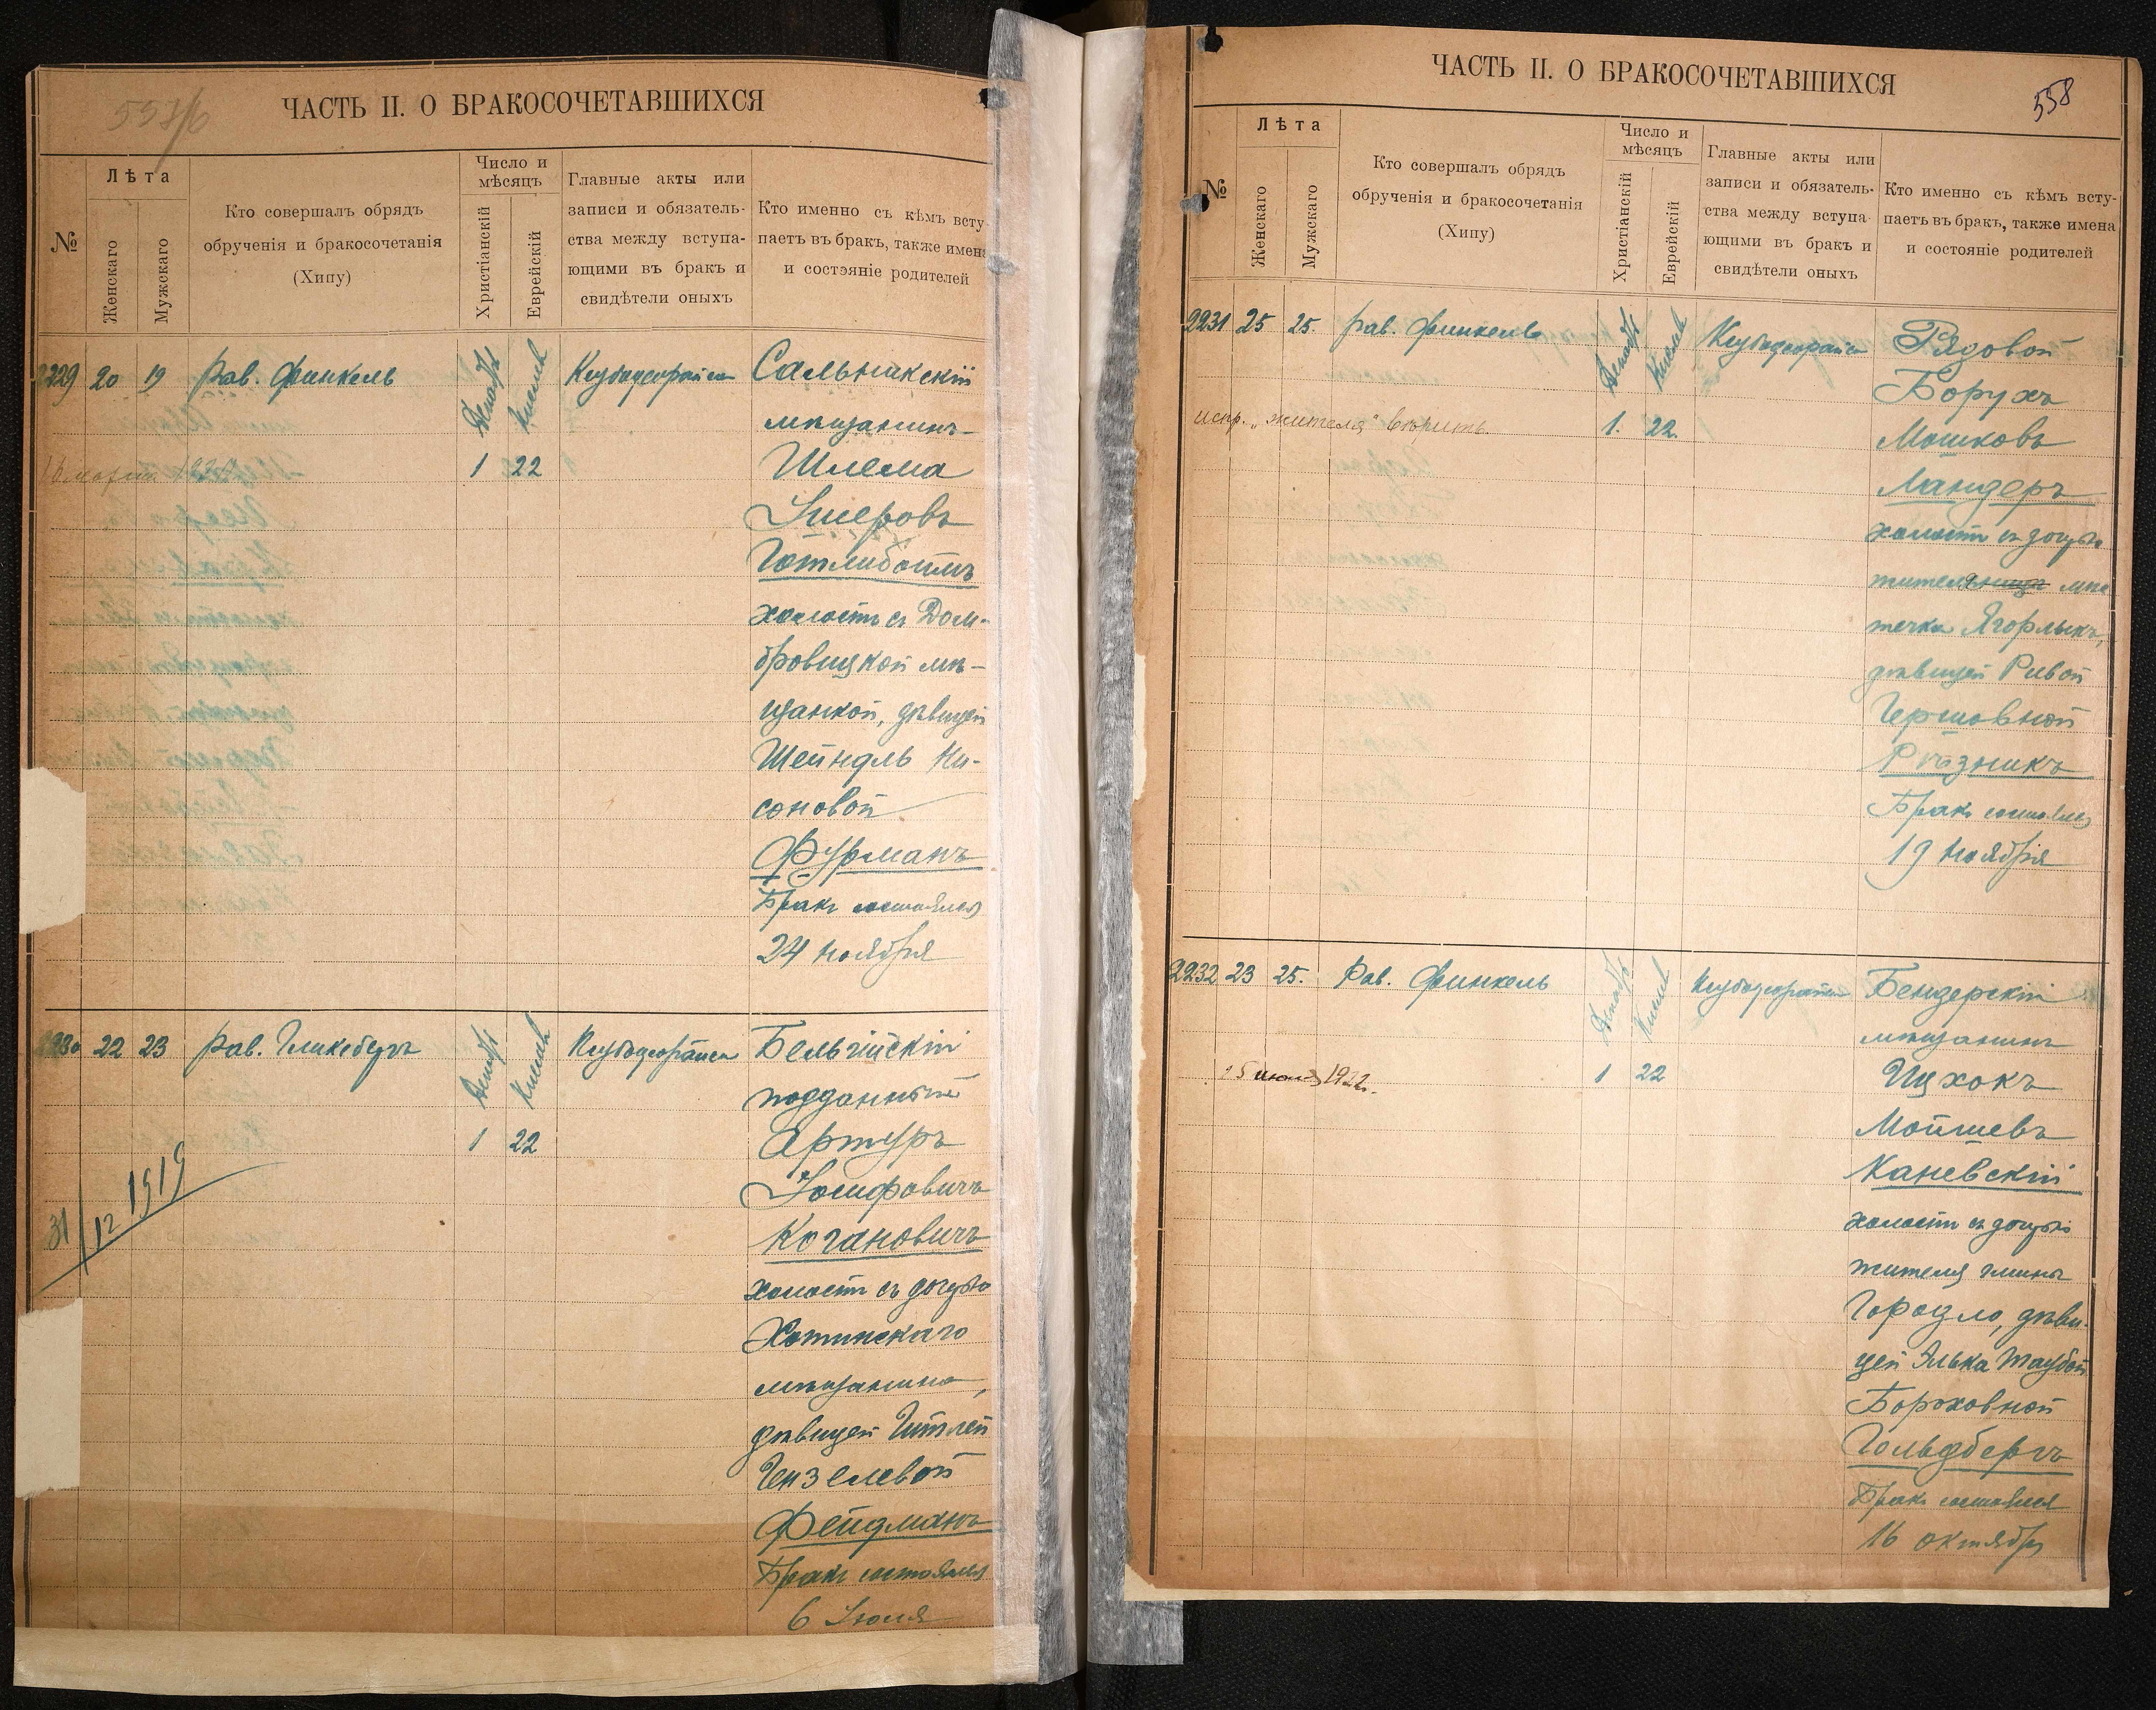 557/б
ЧАСТЬ II. О БРАКОСОЧЕТАВШИХСЯ
№
Лѣта
Женскаго
Мужскаго
Кто совершалъ обрядъ
обрученія и бракосочетанія
(Хипу)
Число и
мѣсяцъ
Христіанскій
Еврейскій
Главные акты или
записи и обязатель-
ства между вступа-
ющими въ бракъ и
свидѣтели оныхъ
Кто именно съ кѣмъ всту
паетъ въ бракъ, также имена
и состояніе родителей
2229 20 19 Рав. Финкель
Декабр
Кислев
1 22
Сальникскій
мѣщанинъ
Шлема
Ушеровъ
Готлибоимъ
холостъ съ Дом-
бровицкой мѣ-
щанкой, дѣвицей
Шейндль Ни-
соновой
Фурманъ
Бракъ состоялся
24 ноября
2230 22 23 Рав. Гликсбергъ
Декабр
Кислев
1 22
31/12 1919
Бельгійскій
подданный
Артуръ
Іосифовичъ
Когановичъ
холостъ съ дочерью
Хотинскаго
мѣщанина,
дѣвицей Гитлей
Гензелевой
Фейдманъ
Бракъ состоялся
6 Іюля
ЧАСТЬ II. О БРАКОСОЧЕТАВШИХСЯ
558
№
Лѣта
Женскаго
Мужскаго
Кто совершалъ обрядъ
обрученія и бракосочетанія
(Хипу)
Число и
мѣсяцъ
Христіанскій
Еврейскій
Главные акты или
записи и обязатель-
ства между вступа-
ющими въ бракъ и
свидѣтели оныхъ
Кто именно съ кѣмъ всту-
паетъ въ бракъ, также имена
и состояніе родителей
2231 25 25. Рав. Финкель
Декабр
Кислев
испр. „жителя" вѣрить.
1. 22
Рядовой
Борухъ
Мошковъ
Ландеръ
холостъ съ дочерью
жителя мѣс
течка Ягорлыкъ,
дѣвицей Ривой
Гершовной
Рѣзникъ
Бракъ состоялся
19 ноября
2232 23 25. Рав. Финкель
Декабр
Кислев
1922.
1 22
Бендерскій
мѣщанинъ
Ицхокъ
Мойшевъ
Каневскій
холостъ съ дочерью
жителя гмины
Городло, дѣви-
цей Элька Таубой
Бороховной
Гольдбергъ
Бракъ состоялся
16 октября